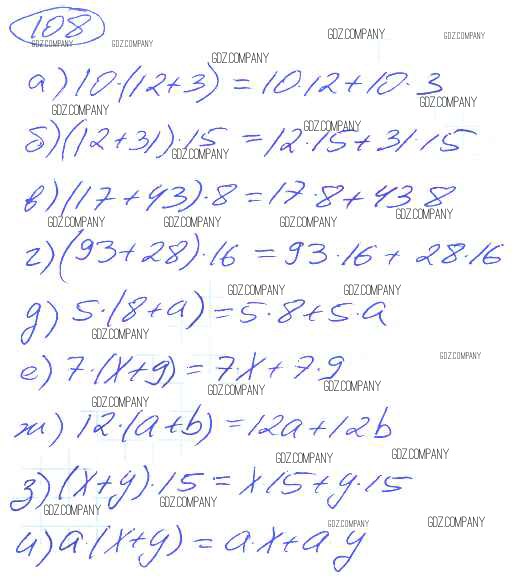 108
GDZ.COMPANY GDZ.COMPANY GDZ.COMPANY GDZ.COMPANY
GDZ.COMPANY
а) 10·(12+3) = 10·12+10·3
GDZ.COMPANY GDZ.COMPANY
GDZ.COMPANY
б) (12+31)·15 = 12·15+31·15
GDZ.COMPANY
в) (17+43)·8 = 17·8+43 8
GDZ.COMPANY GDZ.COMPANY GDZ.COMPANY GDZ.COMPANY
г) (93+28)·16 = 93·16+ 28·16
GDZ.COMPANY GDZ.COMPANY
д) 5·(8+a) = 5·8+5·a
GDZ.COMPANY
GDZ.COMPANY
е) 7·(x+9) = 7·x+7·9
GDZ.COMPANY GDZ.COMPANY GDZ.COMPANY
ж) 12·(a+b) = 12a+12b
GDZ.COMPANY GDZ.COMPANY
з) (x+y)·15 = x15+y·15
GDZ.COMPANY GDZ.COMPANY
GDZ.COMPANY GDZ.COMPANY
и) a·(x+y) = a·x+a y